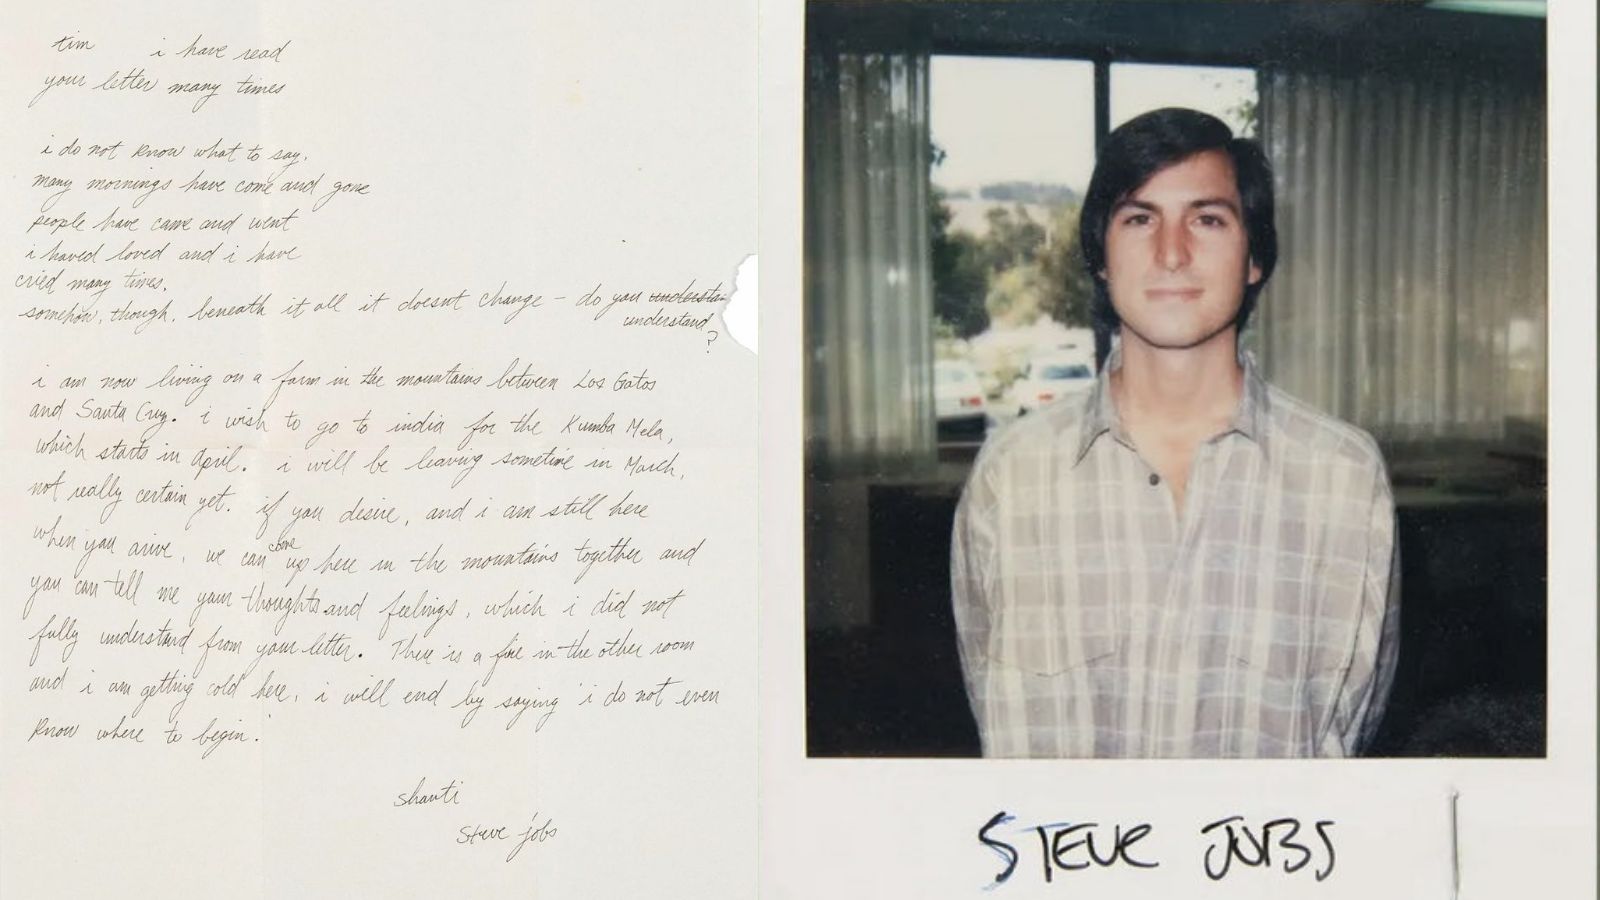 tim i have read
your letter many times
i do not know what to say.
many mornings have come and gone
people have came and went
i haved loved and i have
cried many times.
somehow, though, beneath it all it doesnt change - do you understa
understand
?
i am now living on a farm in the mountains between Los Gatos
and Santa Cruz. i wish to go to india for the Kumba Mela,
which starts in April. i will be leaving sometime in March,
not really certain yet. if you desire, and i am still here
when you arive, we can come up here in the mountains together and
you can tell me your thoughts and feelings, which i did not
fully understand from your letter. There is a fire in the other room
and i am getting cold here, i will end by saying 'i do not even
know where to begin.'
shanti
steve jobs
STEVE JOBS